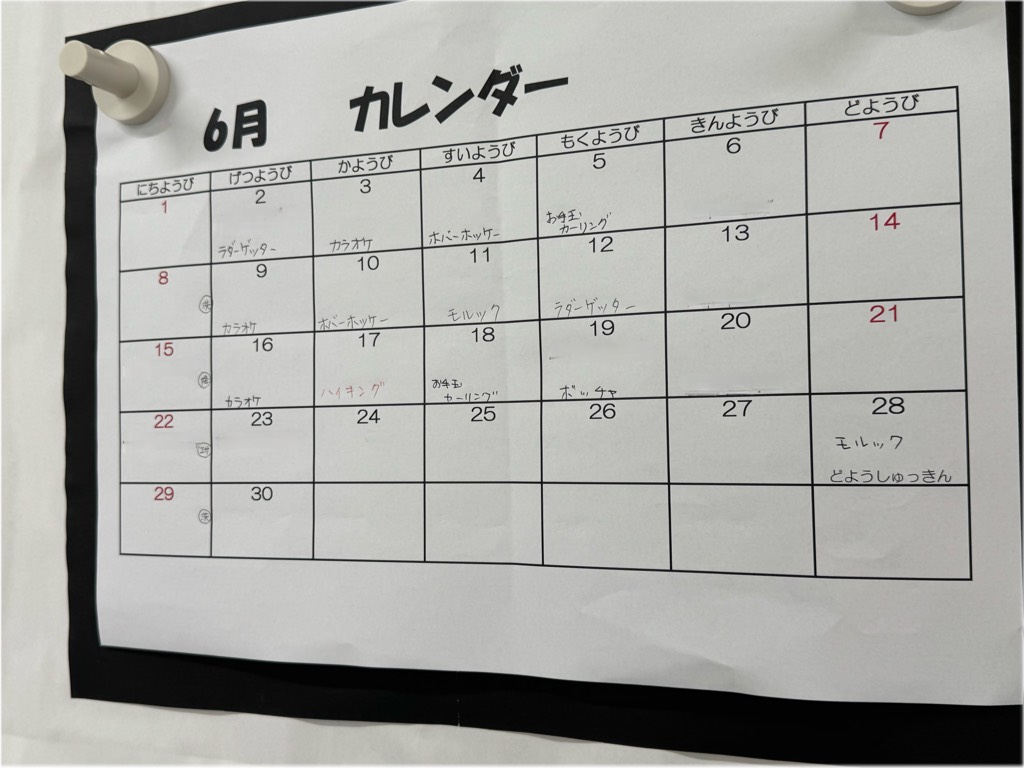 6月 カレンダー
にちようび げつようび かようび すいようび もくようび きんようび どようび
1 2 3 4 5 6 7
ラダーゲッター カラオケ ホバーホッケー お手玉
カーリング
8 9 10 11 12 13 14
カラオケ ホバーホッケー モルック ラダーゲッター
15 16 17 18 19 20 21
カラオケ ハイキング お手玉 ボッチャ
カーリング
22 23 24 25 26 27 28
モルック
どようしゅっきん
29 30